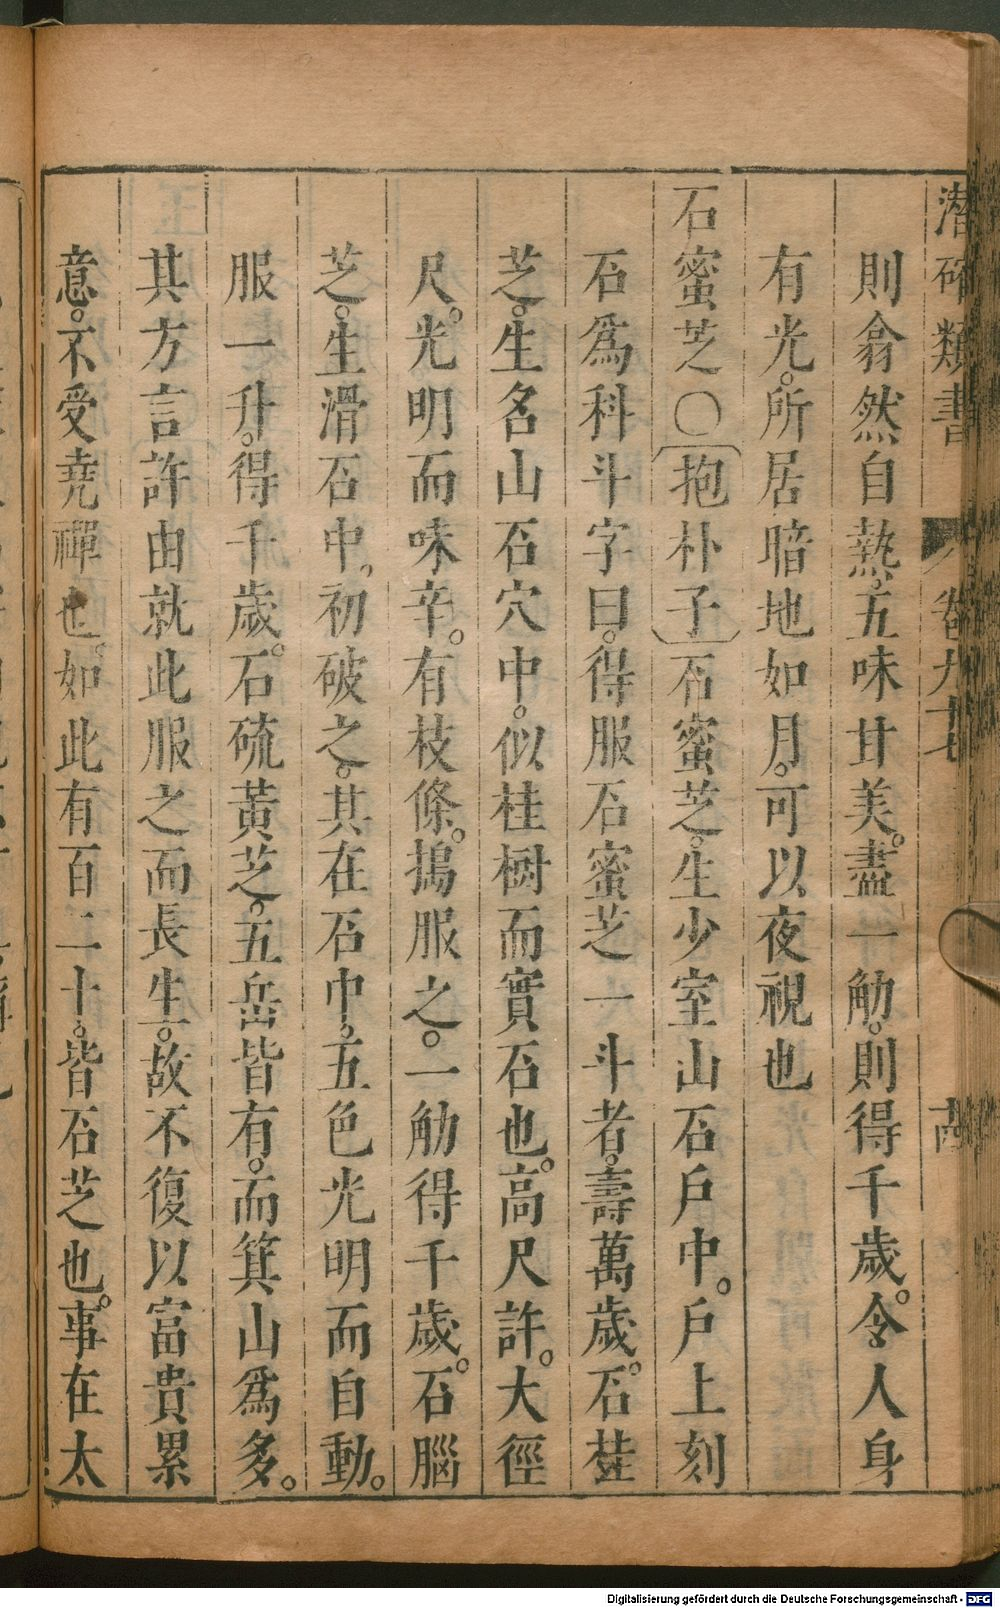 潛確類書 卷九十七 十四
則翕然自熱。五味甘美。盡一觔。則得千歲。令人身
有光。所居暗地如月。可以夜視也
石蜜芝〇抱朴子石蜜芝。生少室山石戶中。戶上刻
石爲科斗字曰。得服石蜜芝一斗者。壽萬歲。石桂
芝。生名山石穴中。似桂樹而實石也。高尺許。大徑
尺。光明而味辛。有枝條。搗服之。一觔得千歲。石腦
芝。生滑石中。初破之。其在石中。五色光明而自動。
服一升。得千歲。石硫黃芝。五岳皆有。而箕山爲多。
其方言許由就此服之而長生。故不復以富貴累
意。不受堯禪也。如此有百二十。皆石芝也。事在太
Digitalisierung gefördert durch die Deutsche Forschungsgemeinschaft - DFG